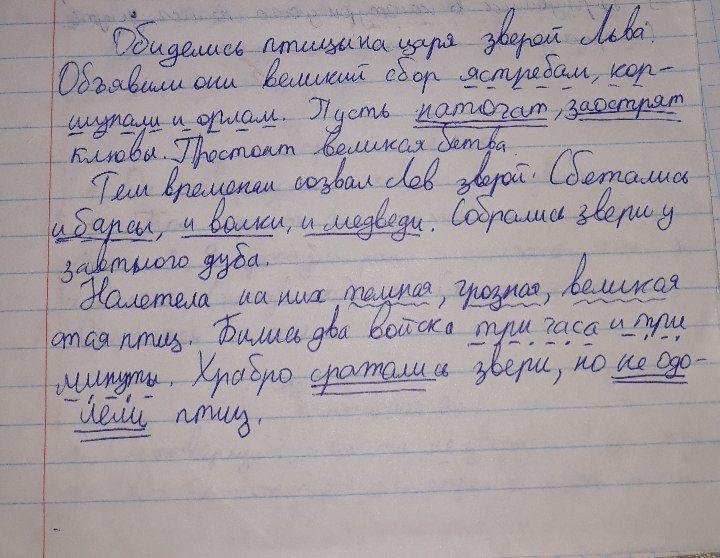 Обиделись птицы на царя зверой Льва.
Объявили они великий сбор ястребам, кор-
шунам и орлам. Пусть наточат, заострят
клювы. Простоит великая битва
Тем временем созвал Лев зверой. Сбетались
и барсы, и волки, и медведи. Собрались звери у
заветного дуба.
Налетела на них темная, грозная, великая
стая птиц. Бились два войска три часа и три
минуты. Храбро сражались звери, но не одо-
лели птиц.